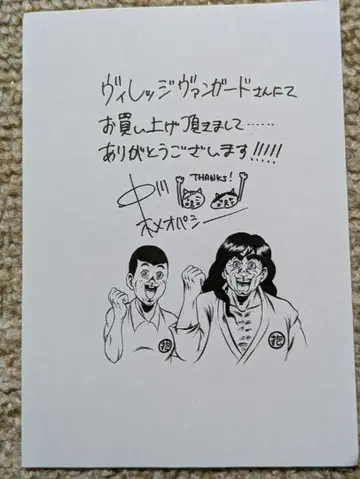 ヴィレッジヴァンガードさんにて
お買い上げ頂きまして……
ありがとうございます!!!!!
THANKS!
ホメオパシー